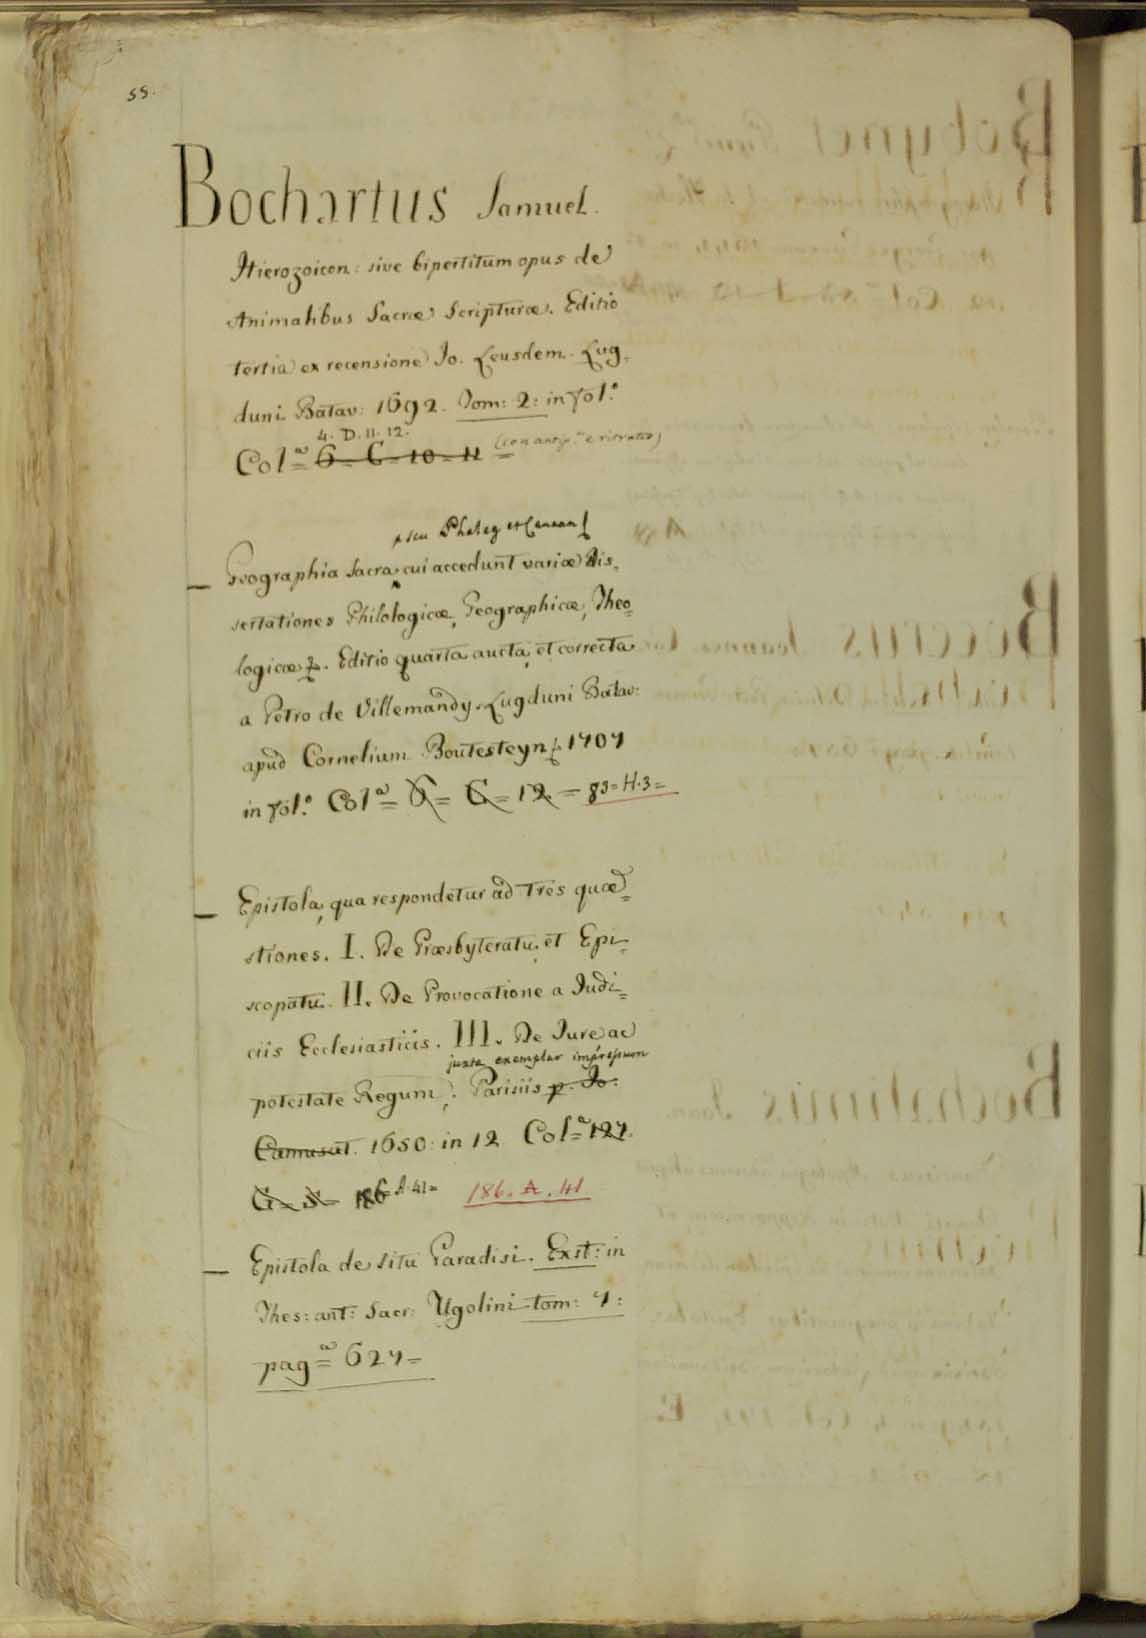 55.
Bochartus Samuel.
Hierozoicon: sive bipertitum opus de
Animalibus Sacræ Scripturæ. Editio
tertia ex recensione Jo. Leusdem. Lug=
duni Batav: 1692. Tom: 2: in fol.º
4. D. 11. 12.
Colª= 6= C= 10= 11 = (con antip.ª e ritratto)
seu Phaleg et Canaan
— Geographia Sacra cui accedunt variæ Dis=
sertationes Philologicæ, Geographicæ, Theo=
logicæ &. Editio quarta aucta, et correcta
a Petro de Villemandy. Lugduni Batav:
apud Cornelium Boutesteyn 1707
in fol.º Colª= 6= C= 12 = 83= H. 3=
— Epistola, qua respondetur ad tres quæ=
stiones. I. De Præsbyteratu, et Epi=
scopatu. II. De Provocatione a Judi=
ciis Ecclesiasticis. III. De Jure ac
juxta exemplar impressum
potestate Regum. Parisiis p. Jo:
Camusat. 1650: in 12 Col=ª 127.
G= 186 A. 41= 186. A. 41
— Epistola de situ Paradisi. Exst: in
Thes: ant: Sacr: Ugolini tom: 7:
pag=ª 627=